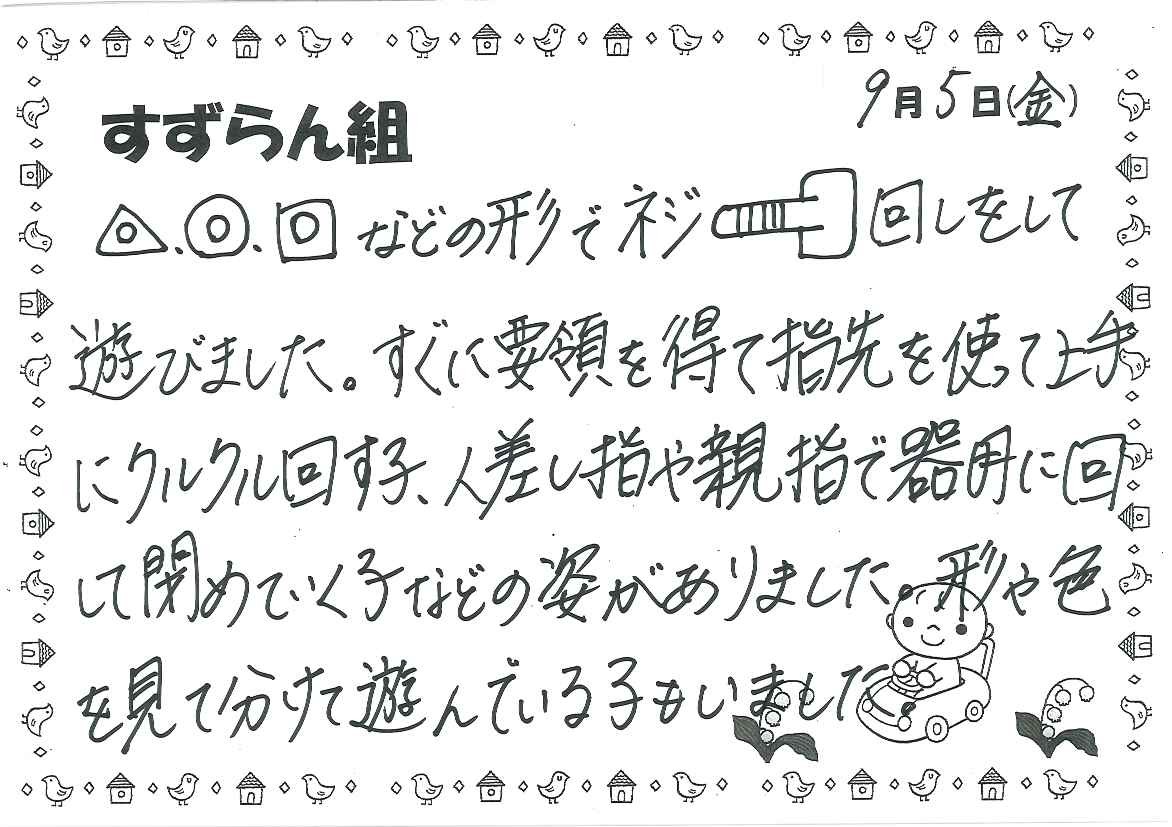 9月5日(金)
すずらん組
△.○.□などの形でネジ回しをして
遊びました。すぐに要領を得て指先を使って上手
にクルクル回す子、人差し指や親指で器用に回
して閉めていく子などの姿がありました。形や色
を見て分けて遊んでいる子もいました。